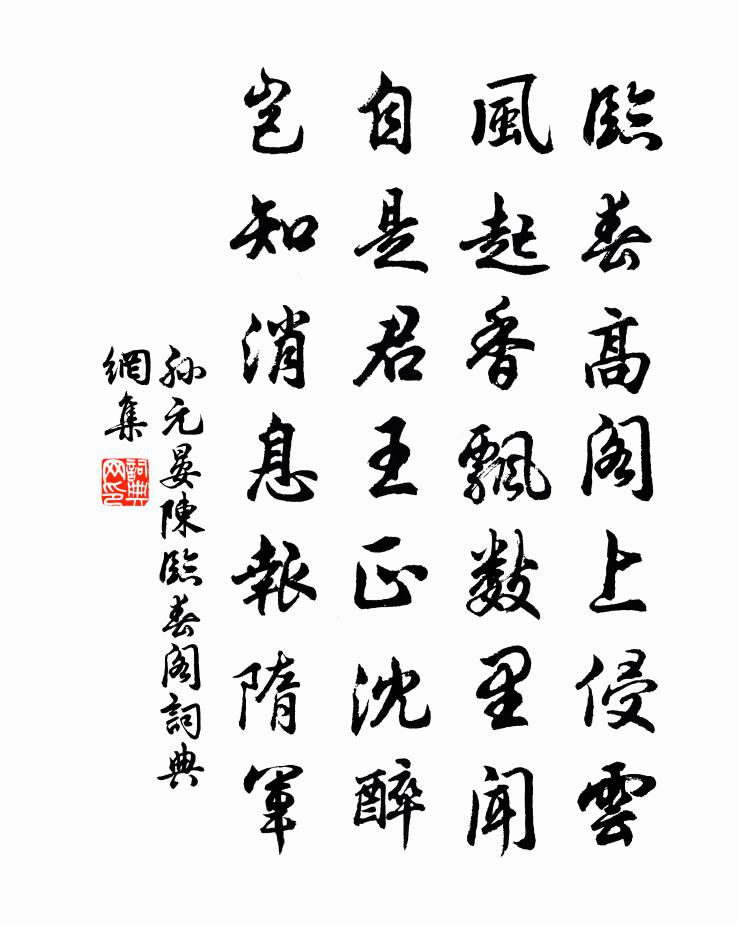 臨春高閣上侵雲
風起香飄數里聞
自是君王正沈醉
豈知消息報隋軍
孫元晏陳臨春閣詞典
網集
詞典網印